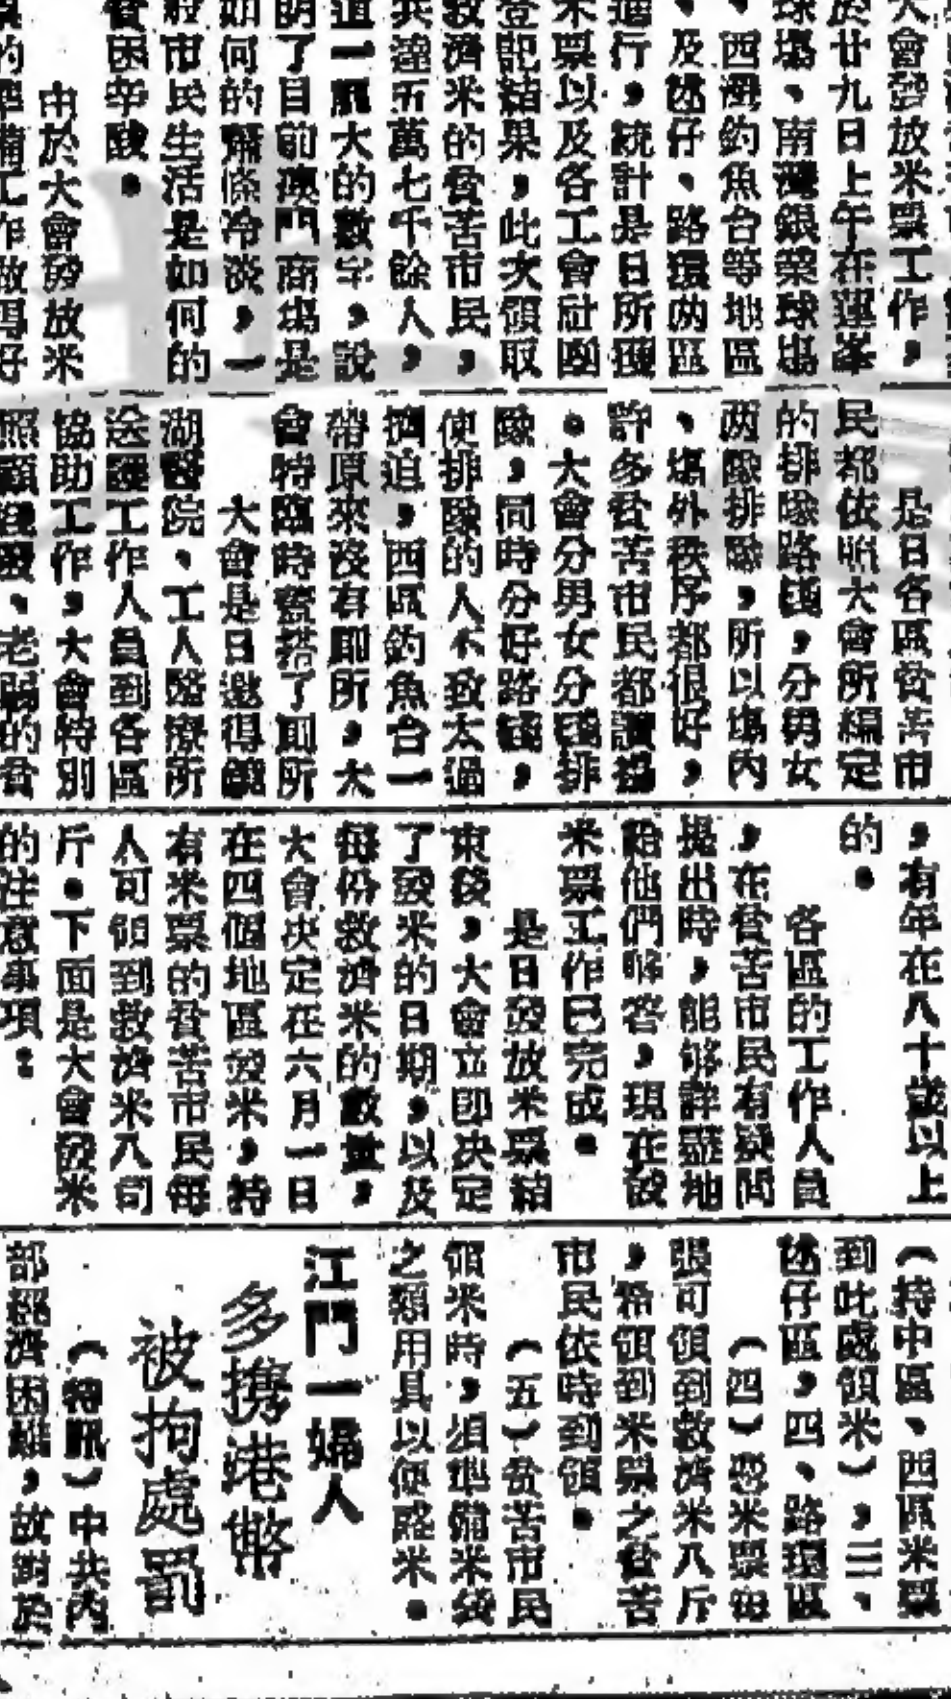 大會發放米票工作，
於廿九日上午在蓮峯
球塲、南灣銀業球塲
、西灣釣魚台等地區
、及氹仔、路環兩區
進行，統計是日所獲
米票以及各工會社團
登記結果，此次領取
救濟米的貧苦市民，
共達五萬七千餘人，
這一龐大的數字，說
明了目前澳門商塲是
如何的蕭條冷淡，一
般市民生活是如何的
貧困辛酸。
由於大會發放米
的準備工作做得好
是日各區貧苦市
民都依照大會所編定
的排隊路綫，分男女
兩隊排隊，所以塲內
、塲外秩序都很好，
許多貧苦市民都讚揚
。大會分男女分綫排
隊，同時分好路綫，
使排隊的人不致太過
擠迫，西區釣魚台一
帶原來沒有厠所，大
會特臨時蓋搭了厠所
大會是日邀得鏡
湖醫院、工人醫療所
送護工作人員到各區
協助工作，大會特別
照顧、老弱的貧
，有年在八十歲以上
的。
各區的工作人員
，在貧苦市民有疑問
提出時，能够詳盡地
給他們解答，現在發
米票工作已完成。
是日發放米票結
束後，大會立即決定
了發米的日期，以及
每份救濟米的數量，
大會決定在六月一日
在四個地區發米，持
有米票的貧苦市民每
人可領到救濟米八司
斤。下面是大會發米
的注意事項：
（持中區、西區米票
到此處領米），三、
氹仔區，四、路環區
（四）憑米票每
張可領到救濟米八斤
，希領到米票之貧苦
市民依時到領。
（五）貧苦市民
領米時，須準備米袋
之類用具以便盛米。
江門一婦人
多携港幣
被拘處罰
（特訊）中共內
部經濟困難，故對於